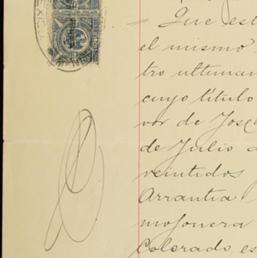 Que est
el mismo
tro ultimam
cuyo título
vor de José
de Julio d
veintidos
Arrantia
mojonera
Colorado es